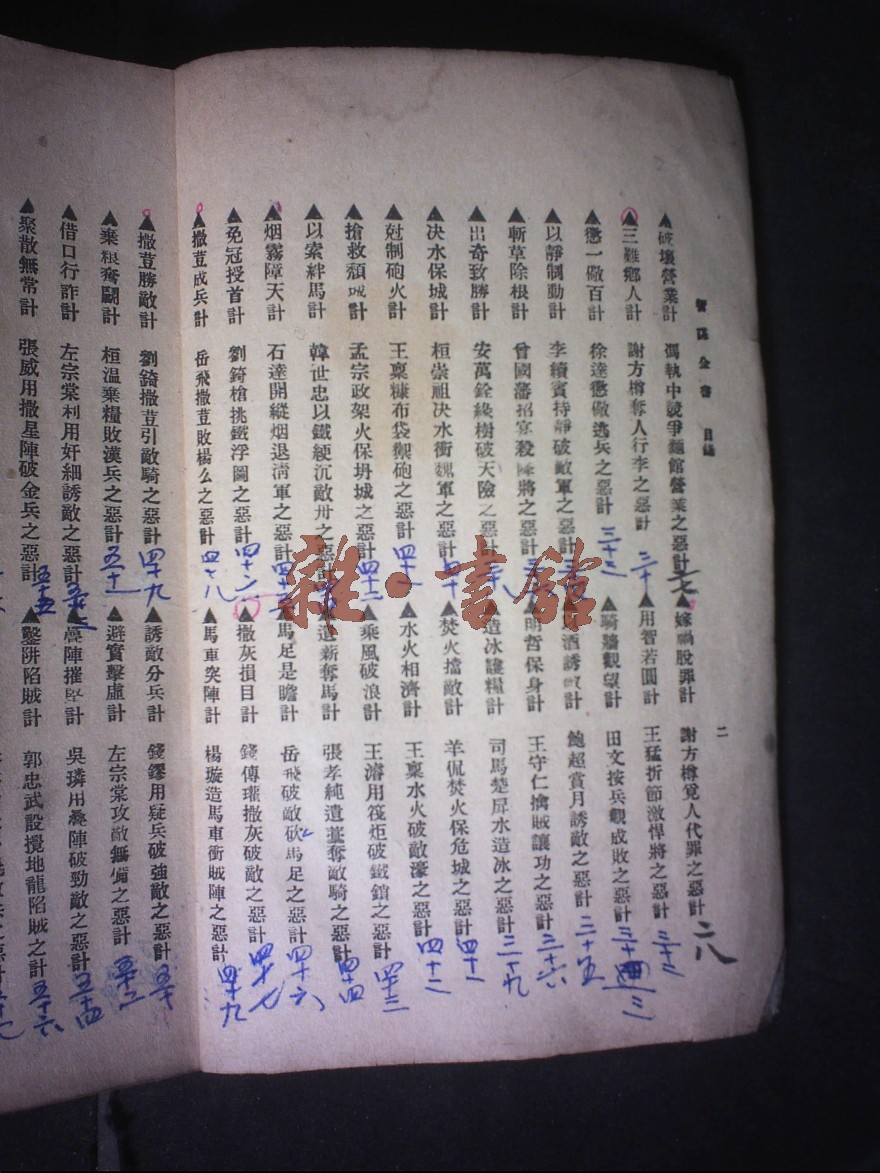 智謀全書 目錄 二
▲破壞營業計 馮執中競爭麵館營業之惡計 二七 ▲嫁禍脫罪計 謝方樽覓人代罪之惡計 二八
▲三難鄉人計 謝方樽奪人行李之惡計 三十 ▲用智若圓計 王猛折節激悍將之惡計 三十二
▲懲一儆百計 徐達懲儆逃兵之惡計 三十三 ▲騎牆觀望計 田文按兵觀成敗之惡計 三十
▲以靜制動計 李續賓持靜破敵軍之惡計 酒誘敵計 鮑超賞月誘敵之惡計 三十五
▲斬草除根計 曾國藩招宴殺降將之惡計 明哲保身計 王守仁擒賊讓功之惡計 三十六
▲出奇致勝計 安萬銓緣樹破天險之惡計 造冰護糧計 司馬楚屏水造冰之惡計 三十九
▲決水保城計 桓崇祖決水衝魏軍之惡計 四十 ▲焚火擋敵計 羊侃焚火保危城之惡計 四十一
▲尅制砲火計 王稟糠布袋禦砲之惡計 四十一 ▲水火相濟計 王稟水火破敵濠之惡計 四十二
▲搶救頹城計 孟宗政架火保坍城之惡計 四十二 ▲乘風破浪計 王濬用筏炬破鐵鎖之惡計 四十三
▲以索絆馬計 韓世忠以鐵綆沉敵舟之惡計 遺薪奪馬計 張孝純遺藁奪敵騎之惡計 四十四
▲烟霧障天計 石達開縱烟退清軍之惡計 四十五 ▲馬足是瞻計 岳飛破敵砍馬足之惡計 四十六
▲免冠授首計 劉錡槍挑鐵浮圖之惡計 四十六 ▲撒灰損目計 錢傳瓘撒灰破敵之惡計 四十七
▲撒荳成兵計 岳飛撒荳敗楊么之惡計 四十八 ▲馬車突陣計 楊璇造馬車衝賊陣之惡計 四十九
▲撒荳勝敵計 劉錡撒荳引敵騎之惡計 四十九 ▲誘敵分兵計 錢鏐用疑兵破強敵之惡計 五十
▲棄粮奮鬪計 桓溫棄糧敗漢兵之惡計 五十一 ▲避實擊虛計 左宗棠攻敵無備之惡計 五十二
▲借口行詐計 左宗棠利用奸細誘敵之惡計 五十三 ▲疊陣摧堅計 吳璘用疊陣破勁敵之惡計 五十四
▲聚散無常計 張威用撒星陣破金兵之惡計 五十五 ▲鑿阱陷賊計 郭忠武設攪地龍陷賊之計 五十六
雜·書館